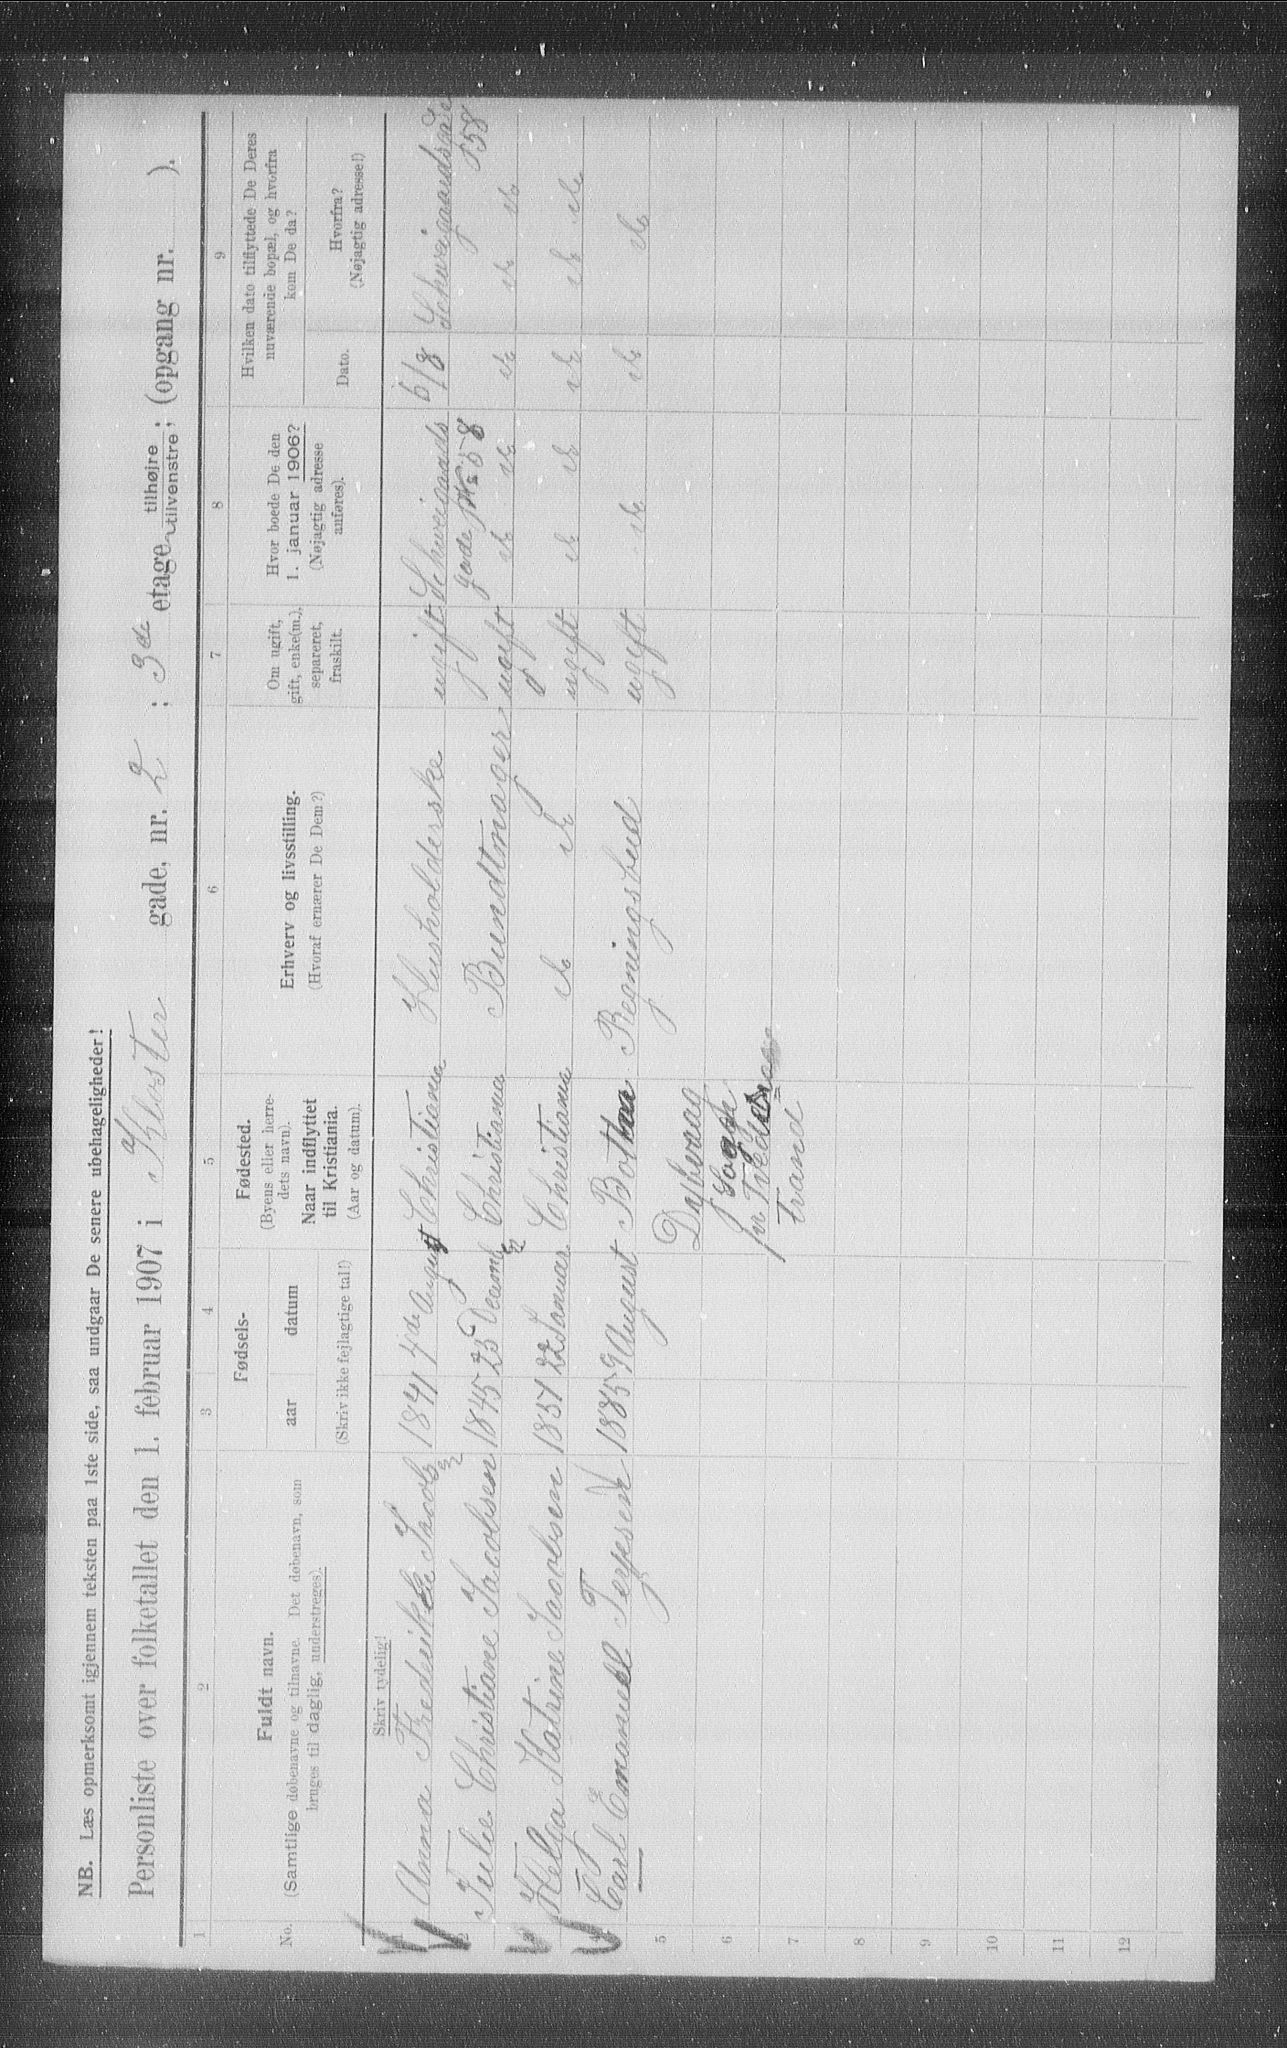 NB. Læs opmerksomt igjennem teksten paa 1ste side, saa undgaar De senere ubehageligheder!
Personliste over folketallet den 1. februar 1907 i Kloster gade, nr. 2 ; 3de etage tilhøjre tilvenstre; (opgang nr. ).
1 2 3 4 5 6 7 8 9
No.
Fuldt navn.
(Samtlige døbenavne og tilnavne. Det døbenavn, som
bruges til daglig, understreges).
Fødsels-
aar datum
(Skriv ikke fejlagtige tal!)
Fødested.
(Byens eller herre-
dets navn).
Naar indflyttet
til Kristiania.
(Aar og datum).
Erhverv og livsstilling.
(Hvoraf ernærer De Dem?)
Om ugift,
gift, enke(m.),
separeret,
fraskilt.
Hvor boede De den
1. januar 1906?
(Nøjagtig adresse
anføres).
Hvilken dato tilflyttede De Deres
nuværende bopæl, og hvorfra
kom De da?
Dato.
Hvorfra?
(Nøjagtig adresse!)
Skriv tydelig!
1 Anna Fredrikke Jacobsen 1841 7de August Christiania Husholderske ugift Schweigaards 6/8 Schweigaardsgade
gade No 58 58
2 Julie Christiane Jacobsen 1845 25 Decembr Christiania Bundtmager ugift do do do do do
3 Helga Katrine Jacobsen 1851 22 Januar Christiania do do ugift do do do do do
4 Carl Emanuel Terjesen 1885 9 August Botnen Regningsbud ugift do do do
Dybvaag
Sogn
pr Tvede
strand
5
6
7
8
9
10
11
12